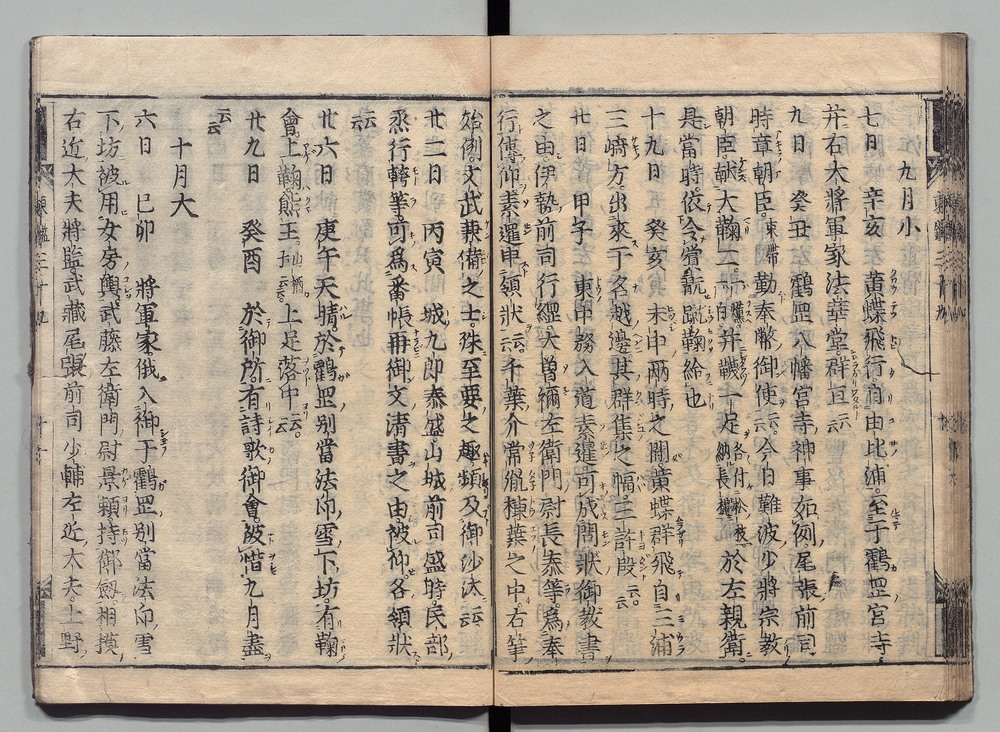 九月小
七日 辛亥 黃蝶飛行自由比浦至于鶴罡宮寺
并右大將軍家法華堂群亘云云
九日 癸丑 鶴罡八幡宮寺神事如例尾張前司
時章朝臣束帶勤奉幣御使云云今日難波少將宗教
朝臣獻大鞠一并韈十足於左親衛
是當時依令賞翫蹴鞠給也
十九日 癸亥 未申兩時之間黃蝶群飛自三浦
三﨑方出來于名越邊其群集之幅三許段云云
廿日 甲子 東中務入道素暹可成問狀御教書
之由伊勢前司行經大曽禰左衛門尉長泰等爲奉
行傳仰素暹申領狀云云千葉介常胤棟葉之中右筆
始例文武兼備之士殊至要之趣頻及御沙汰云云
廿二日 丙寅 城九郎泰盛山城前司盛時民部
烝行幹等可爲番帳并御文清書之由被仰各領狀
云云
廿六日 庚午 天晴於鶴罡別當法印雪下坊有鞠
會上鞠熊王云云上足落中云云
廿九日 癸酉 於御所有詩歌御會被惜九月盡
云云
十月大
六日 己卯 將軍家俄入御于鶴罡別當法印雪
下坊被用女房輿武藤左衛門尉景頼持御劔相摸
右近大夫將監武藏尾張前司少輔左近大夫上野